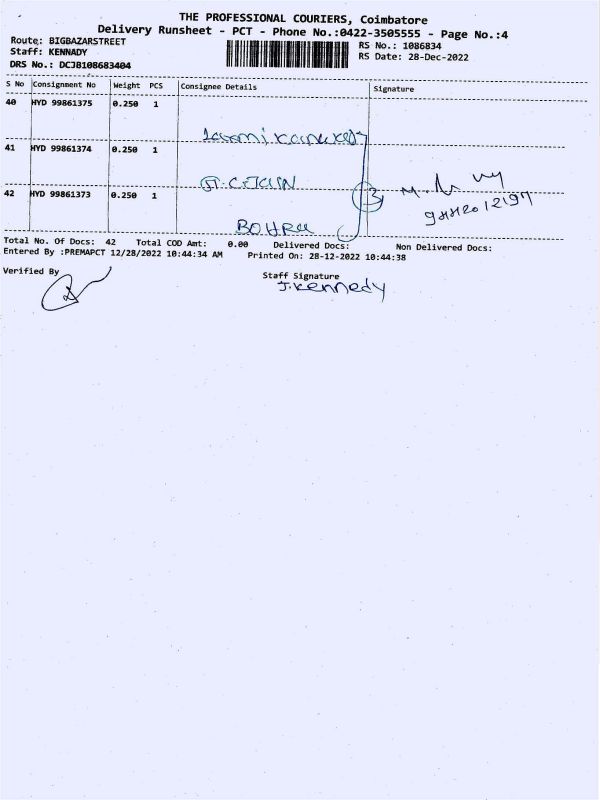 THE PROFESSIONAL COURIERS, Coimbatore
Delivery Runsheet - PCT - Phone No.:0422-3505555 - Page No.:4
Route: BIGBAZARSTREET
Staff: KENNADY
DRS No.: DCJB108683404
RS No.: 1086834
RS Date: 28-Dec-2022
S No Consignment No Weight PCS Consignee Details Signature
40 HYD 99861375 0.250 1
41 HYD 99861374 0.250 1
42 HYD 99861373 0.250 1
3
Total No. Of Docs: 42 Total COD Amt: 0.00 Delivered Docs: Non Delivered Docs:
Entered By :PREMAPCT 12/28/2022 10:44:34 AM Printed On: 28-12-2022 10:44:38
Verified By
Staff Signature
J.Kennedy